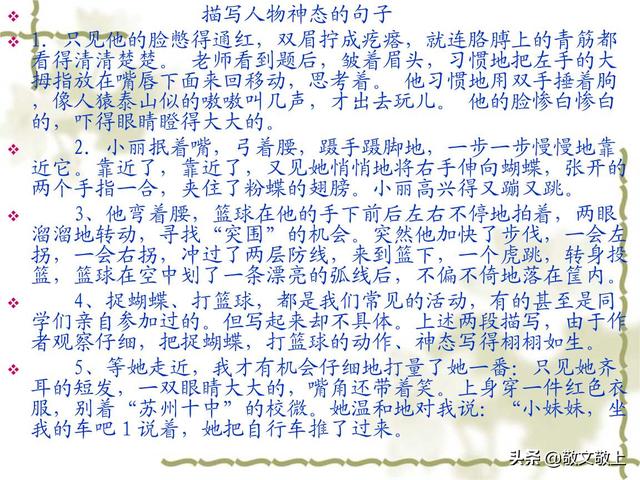 描写人物神态的句子
1．只见他的脸憋得通红，双眉拧成疙瘩，就连胳膊上的青筋都
看得清清楚楚。 老师看到题后，皱着眉头，习惯地把左手的大
拇指放在嘴唇下面来回移动，思考着。 他习惯地用双手捶着胸
，像人猿泰山似的嗷嗷叫几声，才出去玩儿。 他的脸惨白惨白
的，吓得眼睛瞪得大大的。
2．小丽抿着嘴，弓着腰，蹑手蹑脚地，一步一步慢慢地靠
近它。靠近了，靠近了，又见她悄悄地将右手伸向蝴蝶，张开的
两个手指一合，夹住了粉蝶的翅膀。小丽高兴得又蹦又跳。
3、他弯着腰，篮球在他的手下前后左右不停地拍着，两眼
溜溜地转动，寻找“突围”的机会。突然他加快了步伐，一会左
拐，一会右拐，冲过了两层防线，来到篮下，一个虎跳，转身投
篮，篮球在空中划了一条漂亮的弧线后，不偏不倚地落在筐内。
4、捉蝴蝶、打篮球，都是我们常见的活动，有的甚至是同
学们亲自参加过的。但写起来却不具体。上述两段描写，由于作
者观察仔细，把捉蝴蝶，打篮球的动作、神态写得栩栩如生。
5、等她走近，我才有机会仔细地打量了她一番：只见她齐
耳的短发，一双眼睛大大的，嘴角还带着笑。上身穿一件红色衣
服，别着“苏州十中”的校微。她温和地对我说：“小妹妹，坐
我的车吧1说着，她把自行车推了过来。
头条 @敬文敬上